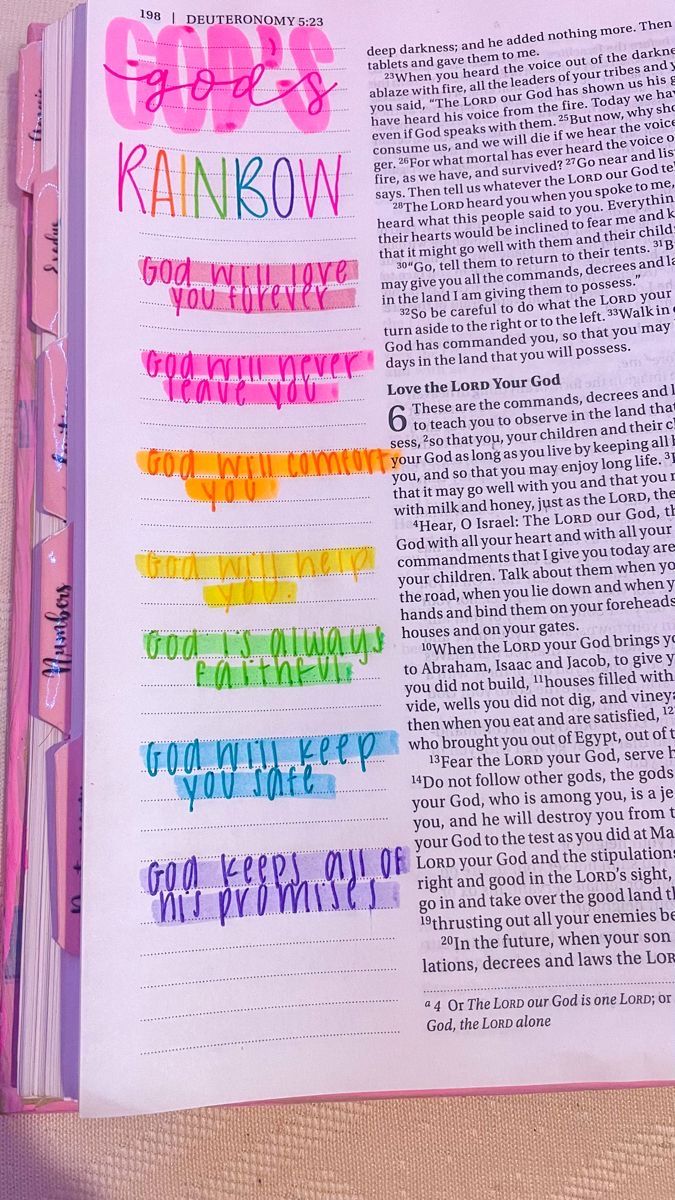 198 | DEUTERONOMY 5:23
GOD'S
god's
RAINBOW
God will love
you forever
God will never
leave you
God will comfort
you
God will help
you.
God is always
faithful.
God will keep
you safe
God keeps all of
his promises
Exodus
Numbers
deep darkness; and he added nothing more. Then
tablets and gave them to me.
23When you heard the voice out of the darkne
ablaze with fire, all the leaders of your tribes and y
you said, “The LORD our God has shown us his g
have heard his voice from the fire. Today we hav
even if God speaks with them. 25But now, why sho
consume us, and we will die if we hear the voice
ger. 26For what mortal has ever heard the voice o
fire, as we have, and survived? 27Go near and lis
says. Then tell us whatever the LORD our God te
28The LORD heard you when you spoke to me,
heard what this people said to you. Everythin
their hearts would be inclined to fear me and k
that it might go well with them and their child
30“Go, tell them to return to their tents. 31B
may give you all the commands, decrees and la
in the land I am giving them to possess.”
32So be careful to do what the LORD your
turn aside to the right or to the left. 33Walk in
God has commanded you, so that you may
days in the land that you will possess.
Love the LORD Your God
6 These are the commands, decrees and l
to teach you to observe in the land that
sess, 2so that you, your children and their ch
your God as long as you live by keeping all h
you, and so that you may enjoy long life. 3
that it may go well with you and that you m
with milk and honey, just as the LORD, the
4Hear, O Israel: The LORD our God, th
God with all your heart and with all your
commandments that I give you today are
your children. Talk about them when yo
the road, when you lie down and when y
hands and bind them on your foreheads
houses and on your gates.
10When the LORD your God brings yo
to Abraham, Isaac and Jacob, to give y
you did not build, 11houses filled with
vide, wells you did not dig, and vineya
then when you eat and are satisfied, 12
who brought you out of Egypt, out of t
13Fear the LORD your God, serve h
14Do not follow other gods, the gods
your God, who is among you, is a je
you, and he will destroy you from t
your God to the test as you did at Ma
LORD your God and the stipulations
right and good in the LORD’s sight,
go in and take over the good land th
19thrusting out all your enemies be
20In the future, when your son
lations, decrees and laws the LOR
a 4 Or The LORD our God is one LORD; or
God, the LORD alone